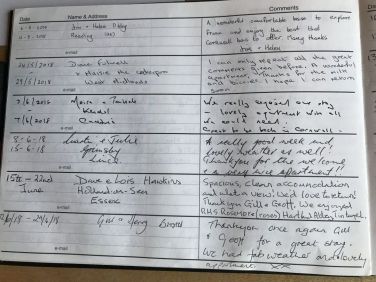 Date Name & Address Comments
2018 Jim + Helen
2018 Reading (UK)
A wonderful comfortable base to explore
from and enjoy the best that
Cornwall has to offer. Many thanks
Jim + Helen
e-mail
26/5/2018 Dave
+ Maisie the
29/5/2018 West Midlands
I can only repeat all the great
comments given before. A wonderful
apartment. Thanks for the milk
and I hope I can return
soon
e-mail
2/6/2018 Moira +
Kendal
7/6/2018 Cumbria
We really enjoyed our stay
- lovely apartment with all
we could need.
Great to be back in Cornwall.
e-mail
8-6-18 + Julie
15-6-18 Grimsby
Lincs
A really good week and
lovely weather as well!
Thankyou for the welcome
& a very nice apartment!!
e-mail
15th - 22nd Dave & Lois Hawkins
June Holland-on-Sea
Essex
Spacious, clean accommodation
and what a view! We'd love to return!
Thankyou Gill & Geoff. We enjoyed
RHS Rosemoor (roses) Hartland Abbey, Tintagel.
e-mail
- 29/6/18
Thankyou once again Gill
& Geoff for a great stay.
We had fab weather and lovely
apartment. xx
e-mail